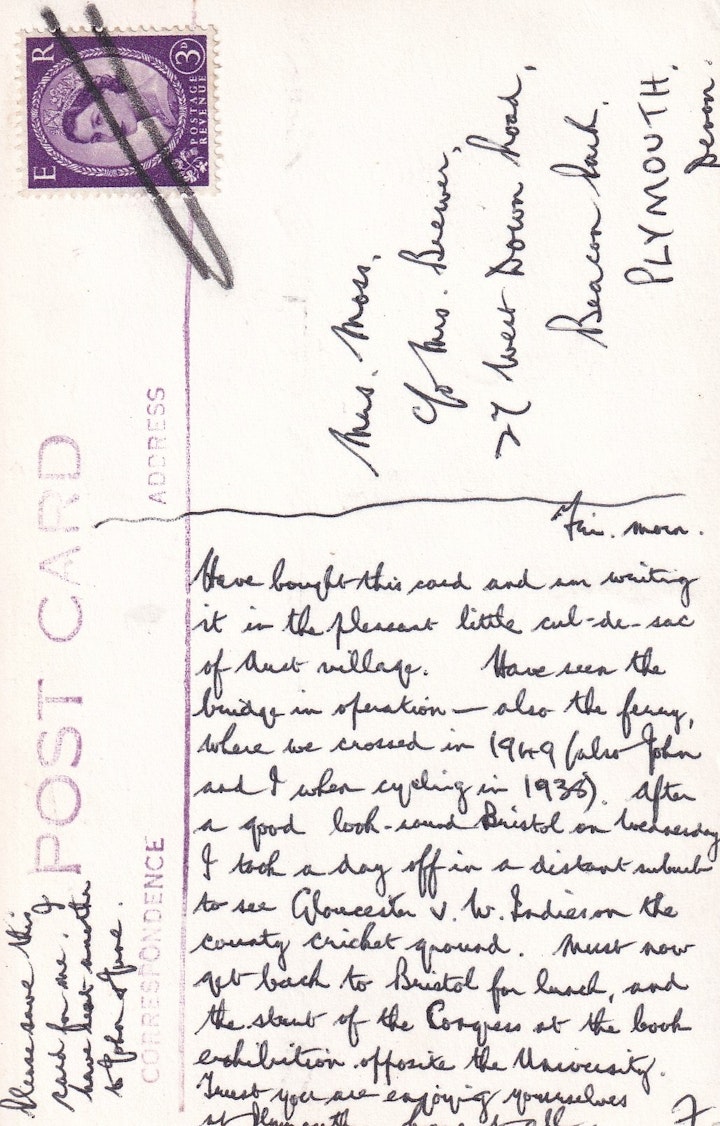 E R
3D
POSTAGE
REVENUE
POST CARD
ADDRESS
CORRESPONDENCE
Mrs. Moss,
c/o Mrs. Brewer,
27 West Down Road,
Beacon Park,
PLYMOUTH.
Devon.
Fri. morn.
Have bought this card and am writing
it in the pleasant little cul-de-sac
of Aust village. Have seen the
bridge in operation — also the ferry,
where we crossed in 1949 (also John
and I when cycling in 1938). After
a good look-round Bristol on Wednesday
I took a day off in a distant suburb
to see Gloucester v. W. Indies on the
county cricket ground. Must now
get back to Bristol for lunch, and
the start of the Congress at the book
exhibition opposite the University.
Trust you are enjoying yourselves
at Plymouth
Please save this
card for me. I
have sent another
to John & June.